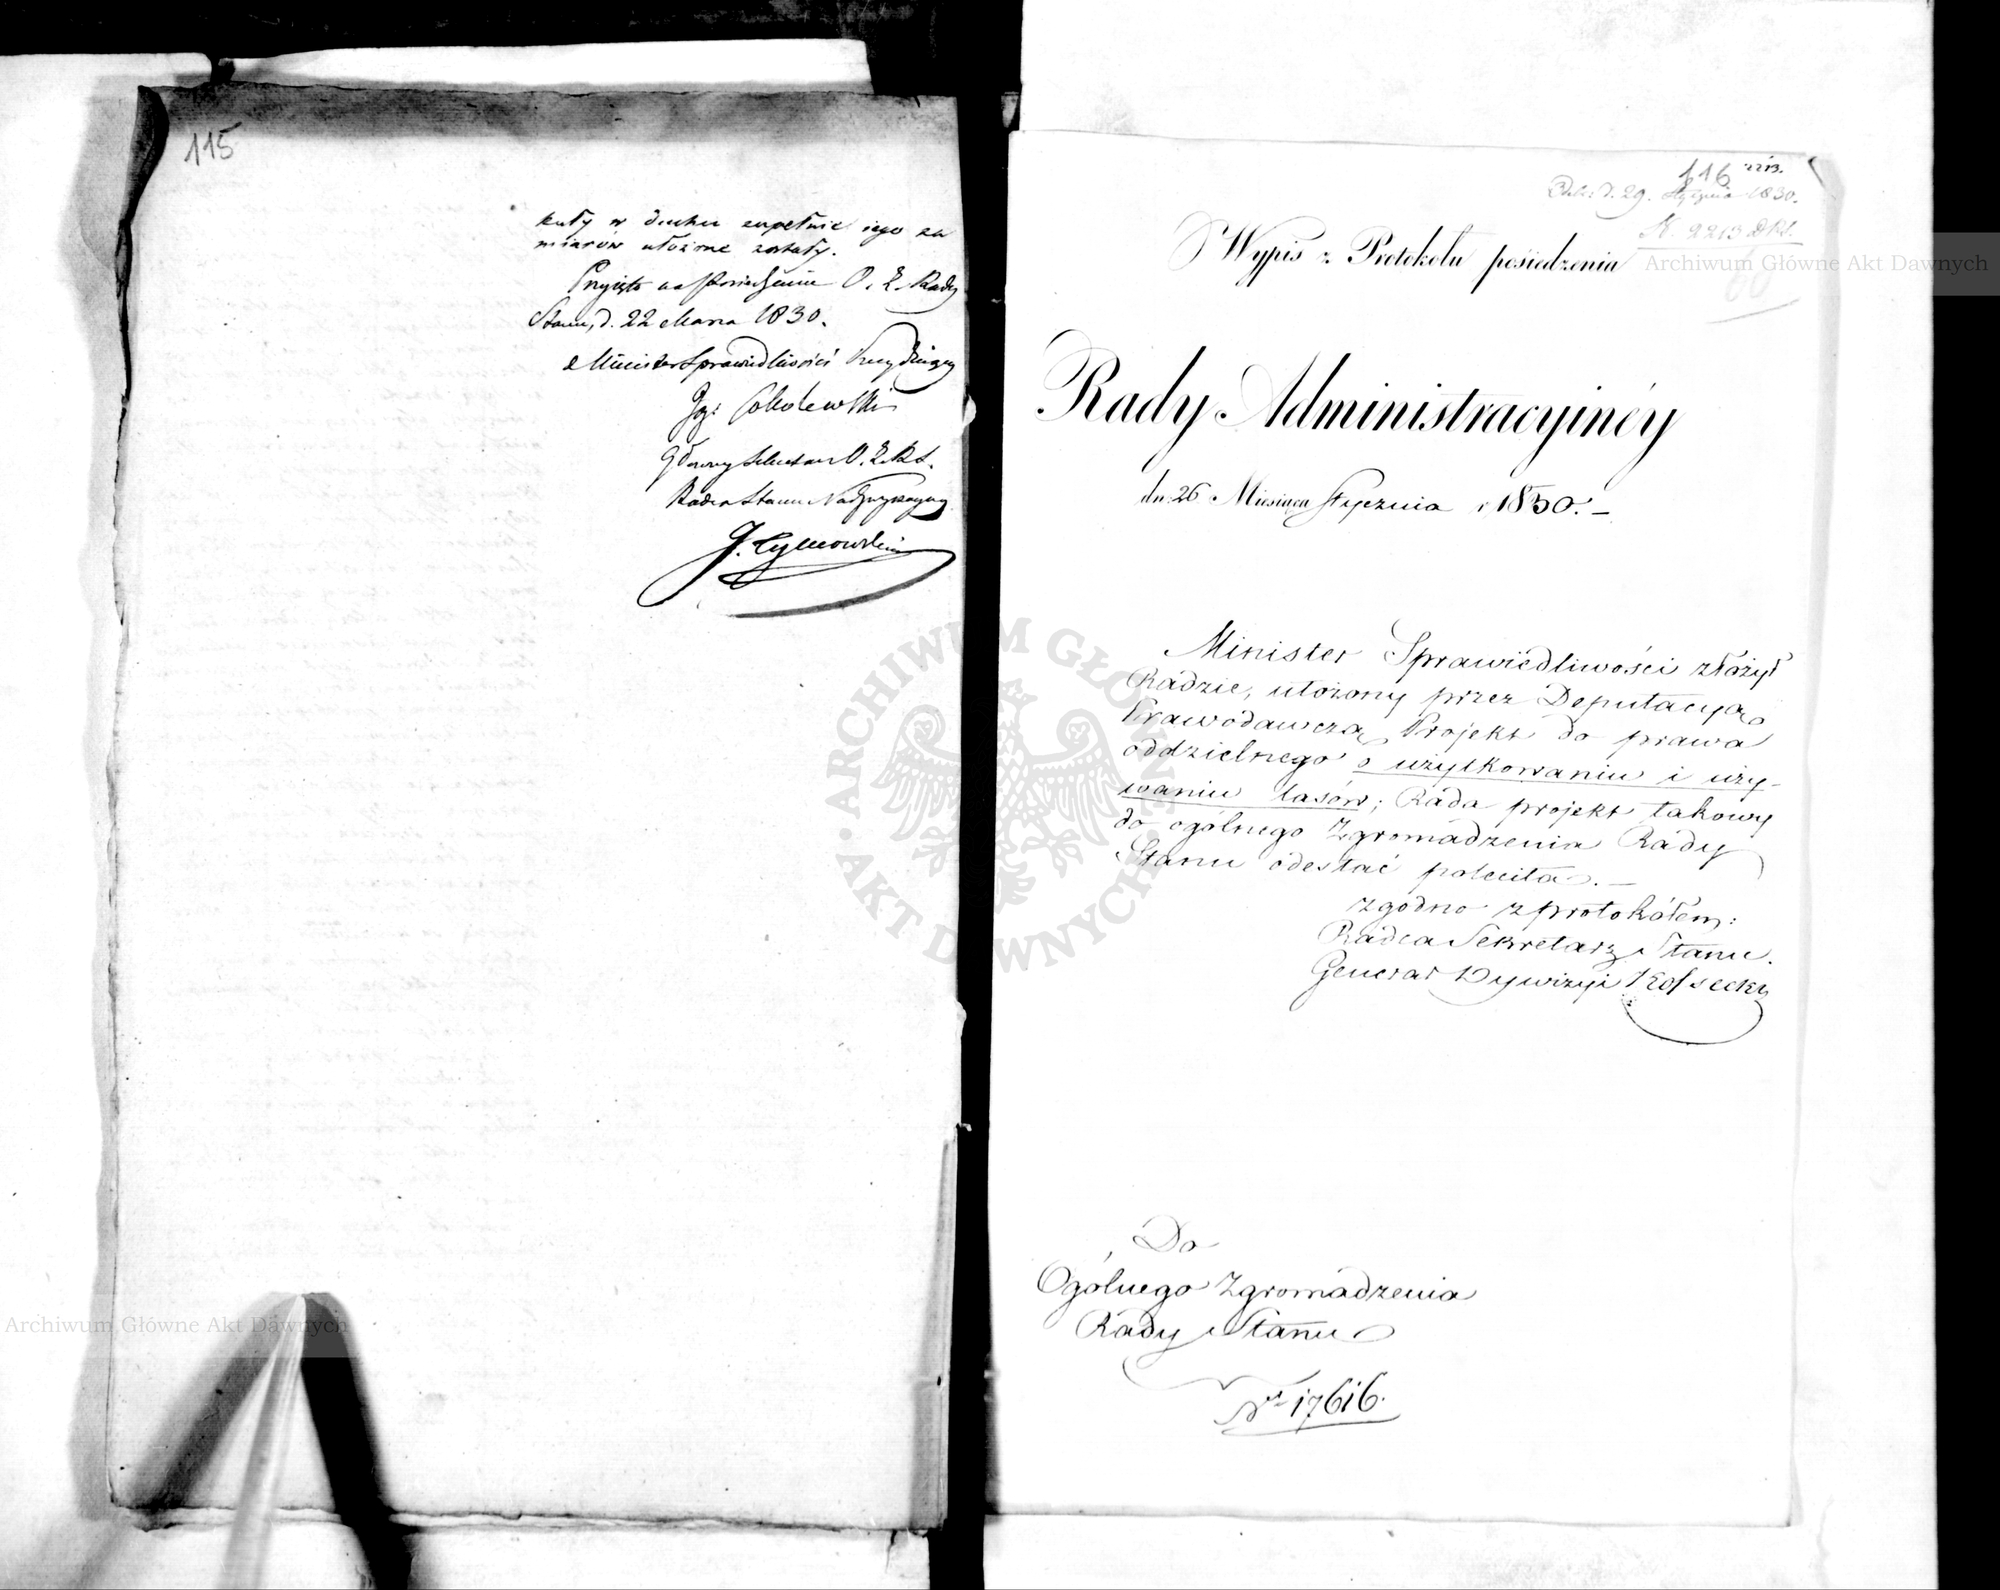 115
kuły w duchu zupełnie iego za
miarów ułożone zostały.
Przyięto na posiedzeniu O. Z. Rady
Stanu, d. 22 Marca 1830.
Minister Sprawiedliwości Prezydujący
Sokolewski
Główny Sekretarz O. Z. R. S.
Radca Stanu Nadzwyczayny
J. Tymowski
116 2213.
d. 29. Stycznia 1830.
N. 2213 D.R.S.
Wypis z Protokołu posiedzenia
Rady Administracyinéy
dn: 26 Miesiąca Stycznia r 1830. –
Minister Sprawiedliwości złożył
Radzie, ułożony przez Deputacyą
Prawodawczą Projekt do prawa
oddzielnego o użytkowaniu i uży-
waniu lasów; Rada projekt takowy
do ogólnego Zgromadzenia Rady
Stanu odesłać poleciła. –
zgodno z protokółem:
Radca Sekretarz Stanu.
Generał Dywizyi Kossecki
Do
Ogólnego Zgromadzenia
Rady Stanu
Nr 17616.
Archiwum Główne Akt Dawnych
Archiwum Główne Akt Dawnych
ARCHIWUM GŁÓWNE AKT DAWNYCH